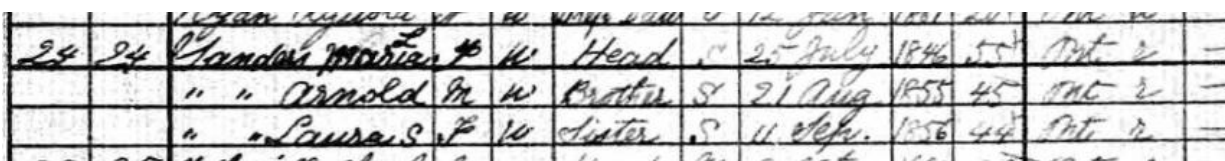 24 24 Landon Maria L F W Head S 25 July 1846 55 Ont r —
" " Arnold M W Brother S 21 Aug 1855 45 Ont r —
" " Laura S F W Sister S 11 Sep. 1856 44 Ont r —